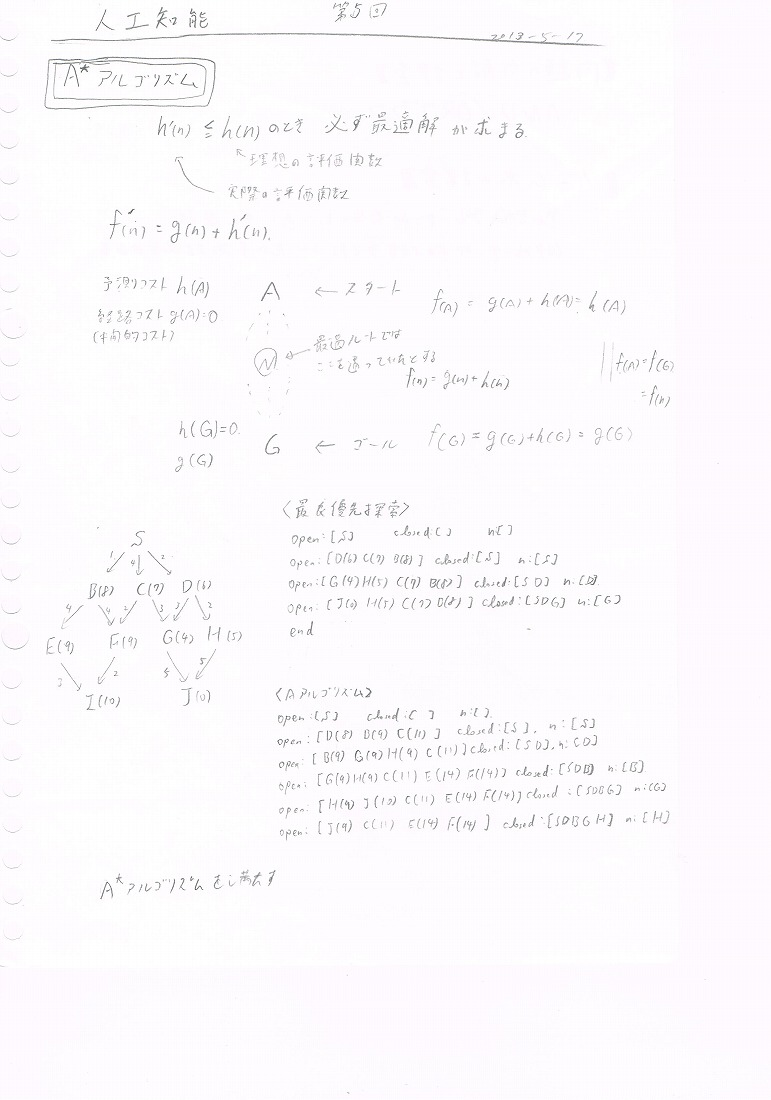 人工知能 第5回
2013-5-17
A* アルゴリズム
h'(n) ≦ h(n) のとき 必ず最適解が求まる.
理想の評価関数
実際の評価関数
f'(n) = g(n) + h'(n).
予測コスト h(A) A ← スタート f(A) = g(A) + h(A) = h(A)
経路コスト g(A)=0
(中間的コスト)
N ← 最適ルートでは
ここを通っていたとする
f(n) = g(n) + h(n)
f(A)=f(G)
=f(n)
h(G)=0. G ← ゴール f(G) = g(G)+h(G) = g(G)
g(G)
〈最良優先探索〉
open:[S] closed:[ ] n[ ]
open:[D(6) C(7) B(8)] closed:[S] n:[S]
open:[G(4) H(5) C(7) B(8)] closed:[S D] n:[D]
open:[J(0) H(5) C(7) D(8)] closed:[SDG] n:[G]
end
S
1 4 2
B(8) C(7) D(6)
4 4 2 3 3 2
E(9) F(9) G(4) H(5)
3 2 5 5
I(10) J(0)
〈Aアルゴリズム〉
open:[S] closed:[ ] n:[ ].
open:[D(8) B(9) C(11)] closed:[S], n:[S]
open:[B(9) G(9) H(9) C(11)] closed:[SD], n:[D]
open:[G(9) H(9) C(11) E(14) F(14)] closed:[SDB] n:[B].
open:[H(9) J(10) C(11) E(14) F(14)] closed:[SDBG] n:[G]
open:[J(9) C(11) E(14) F(14)] closed:[SDBGH] n:[H]
A* アルゴリズムを満たす